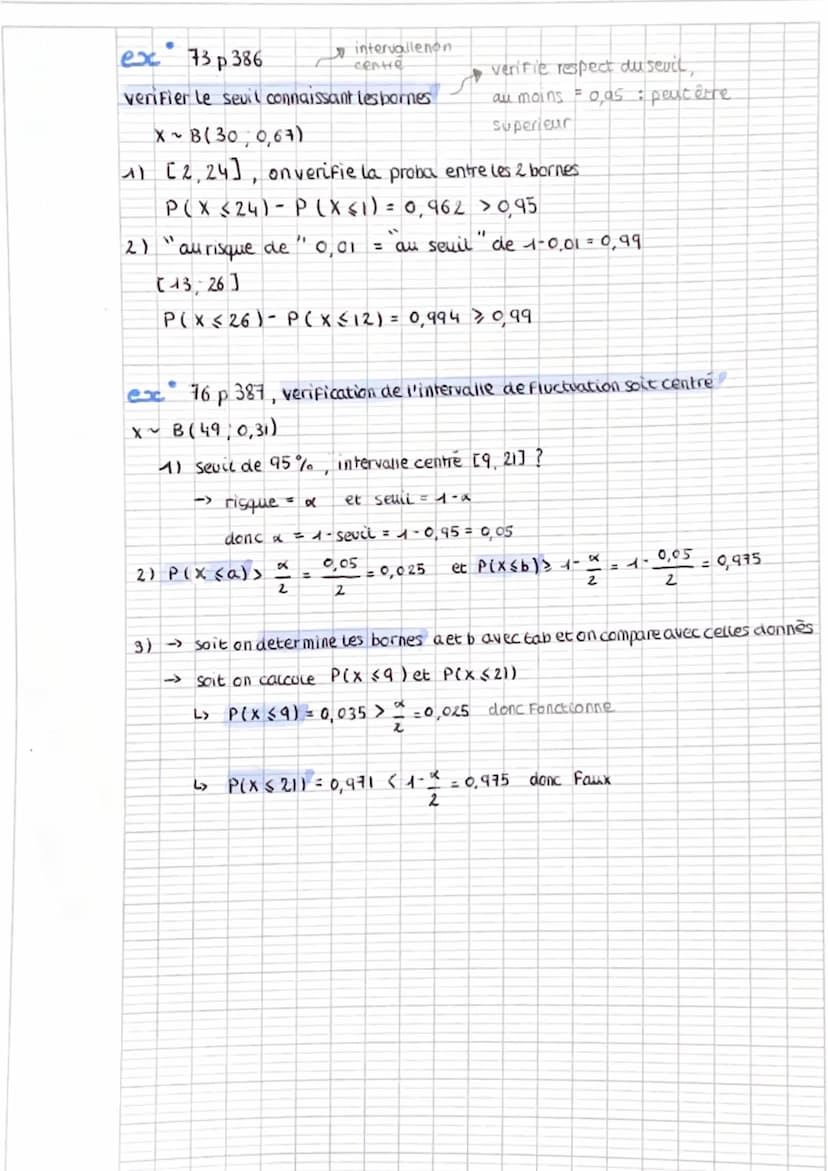 ex° 73 p 386
intervalle non
centré
verifie respect du seuil,
au moins = 0,95 : peut être
superieur
verifier le seuil connaissant les bornes
X ~ B(30 ; 0,67)
1) [2,24], on verifie la proba entre les 2 bornes
P(X ≤ 24) - P(X ≤ 1) = 0,962 > 0,95
2) "au risque de" 0,01 = "au seuil" de 1-0,01 = 0,99
[13 ; 26]
P(X ≤ 26) - P(X ≤ 12) = 0,994 ≥ 0,99
ex° 76 p 387, verification de l'intervalle de fluctuation soit centré
X ~ B(49 ; 0,31)
1) seuil de 95%, intervalle centré [9, 21] ?
→ risque = α et seuil = 1-α
donc α = 1-seuil = 1-0,95 = 0,05
2) P(X ≤ a) > α/2 = 0,05/2 = 0,025 et P(X ≤ b) ≥ 1-α/2 = 1-0,05/2 = 0,975
3) → soit on determine les bornes a et b avec tab et on compare avec celles donnés
→ soit on calcule P(X ≤ 9) et P(X ≤ 21)
↳ P(X ≤ 9) = 0,035 > α/2 = 0,025 donc Fonctionne
↳ P(X ≤ 21) = 0,971 < 1-α/2 = 0,975 donc Faux